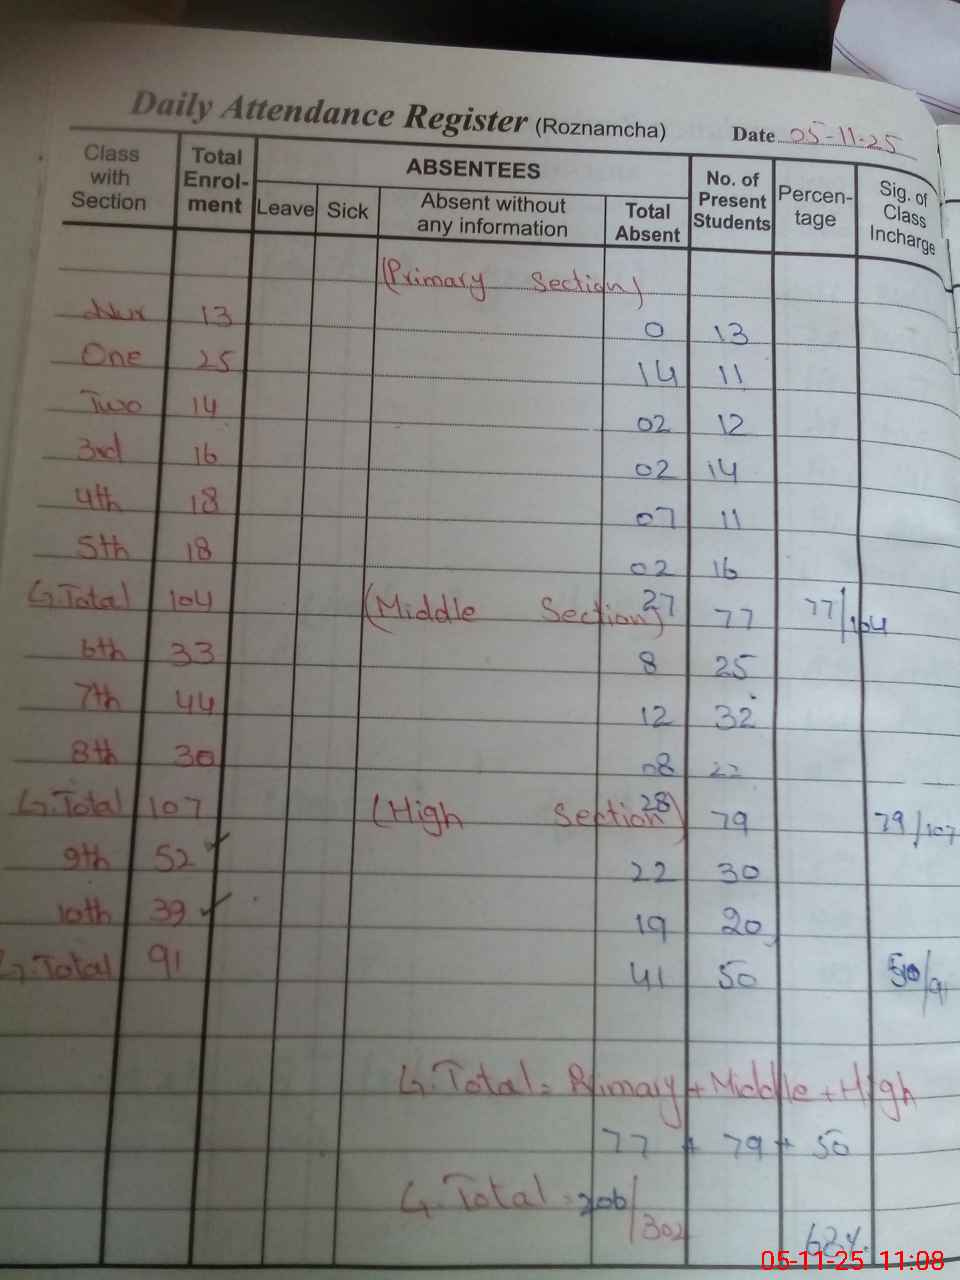 Daily Attendance Register (Roznamcha) Date 05-11-25
Class with Section Total Enrol-ment ABSENTEES No. of Present Students Percen-tage Sig. of Class Incharge
Leave Sick Absent without any information Total Absent
(Primary Section)
Nur 13 0 13
One 25 14 11
Two 14 02 12
3rd 16 02 14
4th 18 07 11
5th 18 02 16
G.Total 104 27 77 77/104
(Middle Section)
6th 33 8 25
7th 44 12 32
8th 30 08 22
G.Total 107 28 79 79/107
(High Section)
9th 52 ✓ 22 30
10th 39 ✓ 19 20
G.Total 91 41 50 50/91
G.Total = Primary + Middle + High
77 + 79 + 50
G.Total = 206/302
68%
05-11-25 11:08